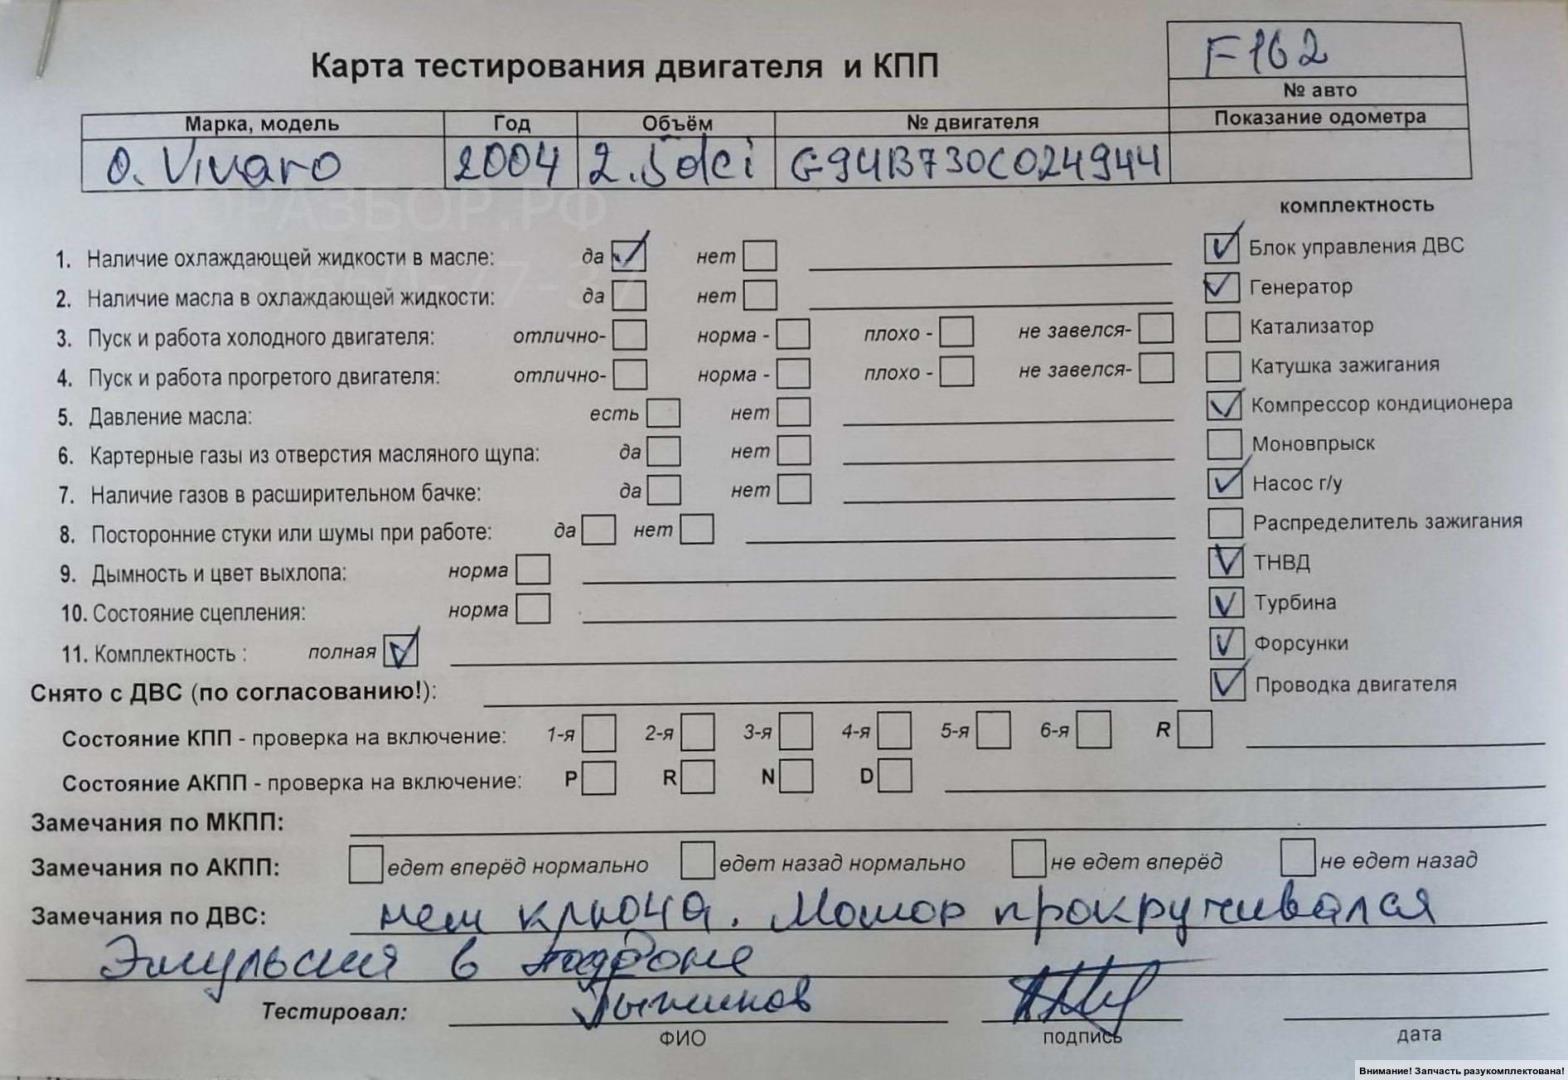 F162
№ авто
Карта тестирования двигателя и КПП
Марка, модель Год Объём № двигателя Показание одометра
O. Vivaro 2004 2.5dci G94B730C024944
комплектность
1. Наличие охлаждающей жидкости в масле: да нет
Блок управления ДВС
2. Наличие масла в охлаждающей жидкости: да нет
Генератор
3. Пуск и работа холодного двигателя: отлично- норма - плохо - не завелся-
Катализатор
4. Пуск и работа прогретого двигателя: отлично- норма - плохо - не завелся-
Катушка зажигания
5. Давление масла: есть нет
Компрессор кондиционера
6. Картерные газы из отверстия масляного щупа: да нет
Моновпрыск
7. Наличие газов в расширительном бачке: да нет
Насос г/у
8. Посторонние стуки или шумы при работе: да нет
Распределитель зажигания
9. Дымность и цвет выхлопа: норма
ТНВД
10. Состояние сцепления: норма
Турбина
11. Комплектность : полная
Форсунки
Снято с ДВС (по согласованию!):
Проводка двигателя
Состояние КПП - проверка на включение: 1-я 2-я 3-я 4-я 5-я 6-я R
Состояние АКПП - проверка на включение: P R N D
Замечания по МКПП:
Замечания по АКПП: едет вперёд нормально едет назад нормально не едет вперёд не едет назад
Замечания по ДВС: нет ключа. Мотор прокручивался
Эмульсия в поддоне
Тестировал:
ФИО подпись дата
Внимание! Запчасть разукомплектована!